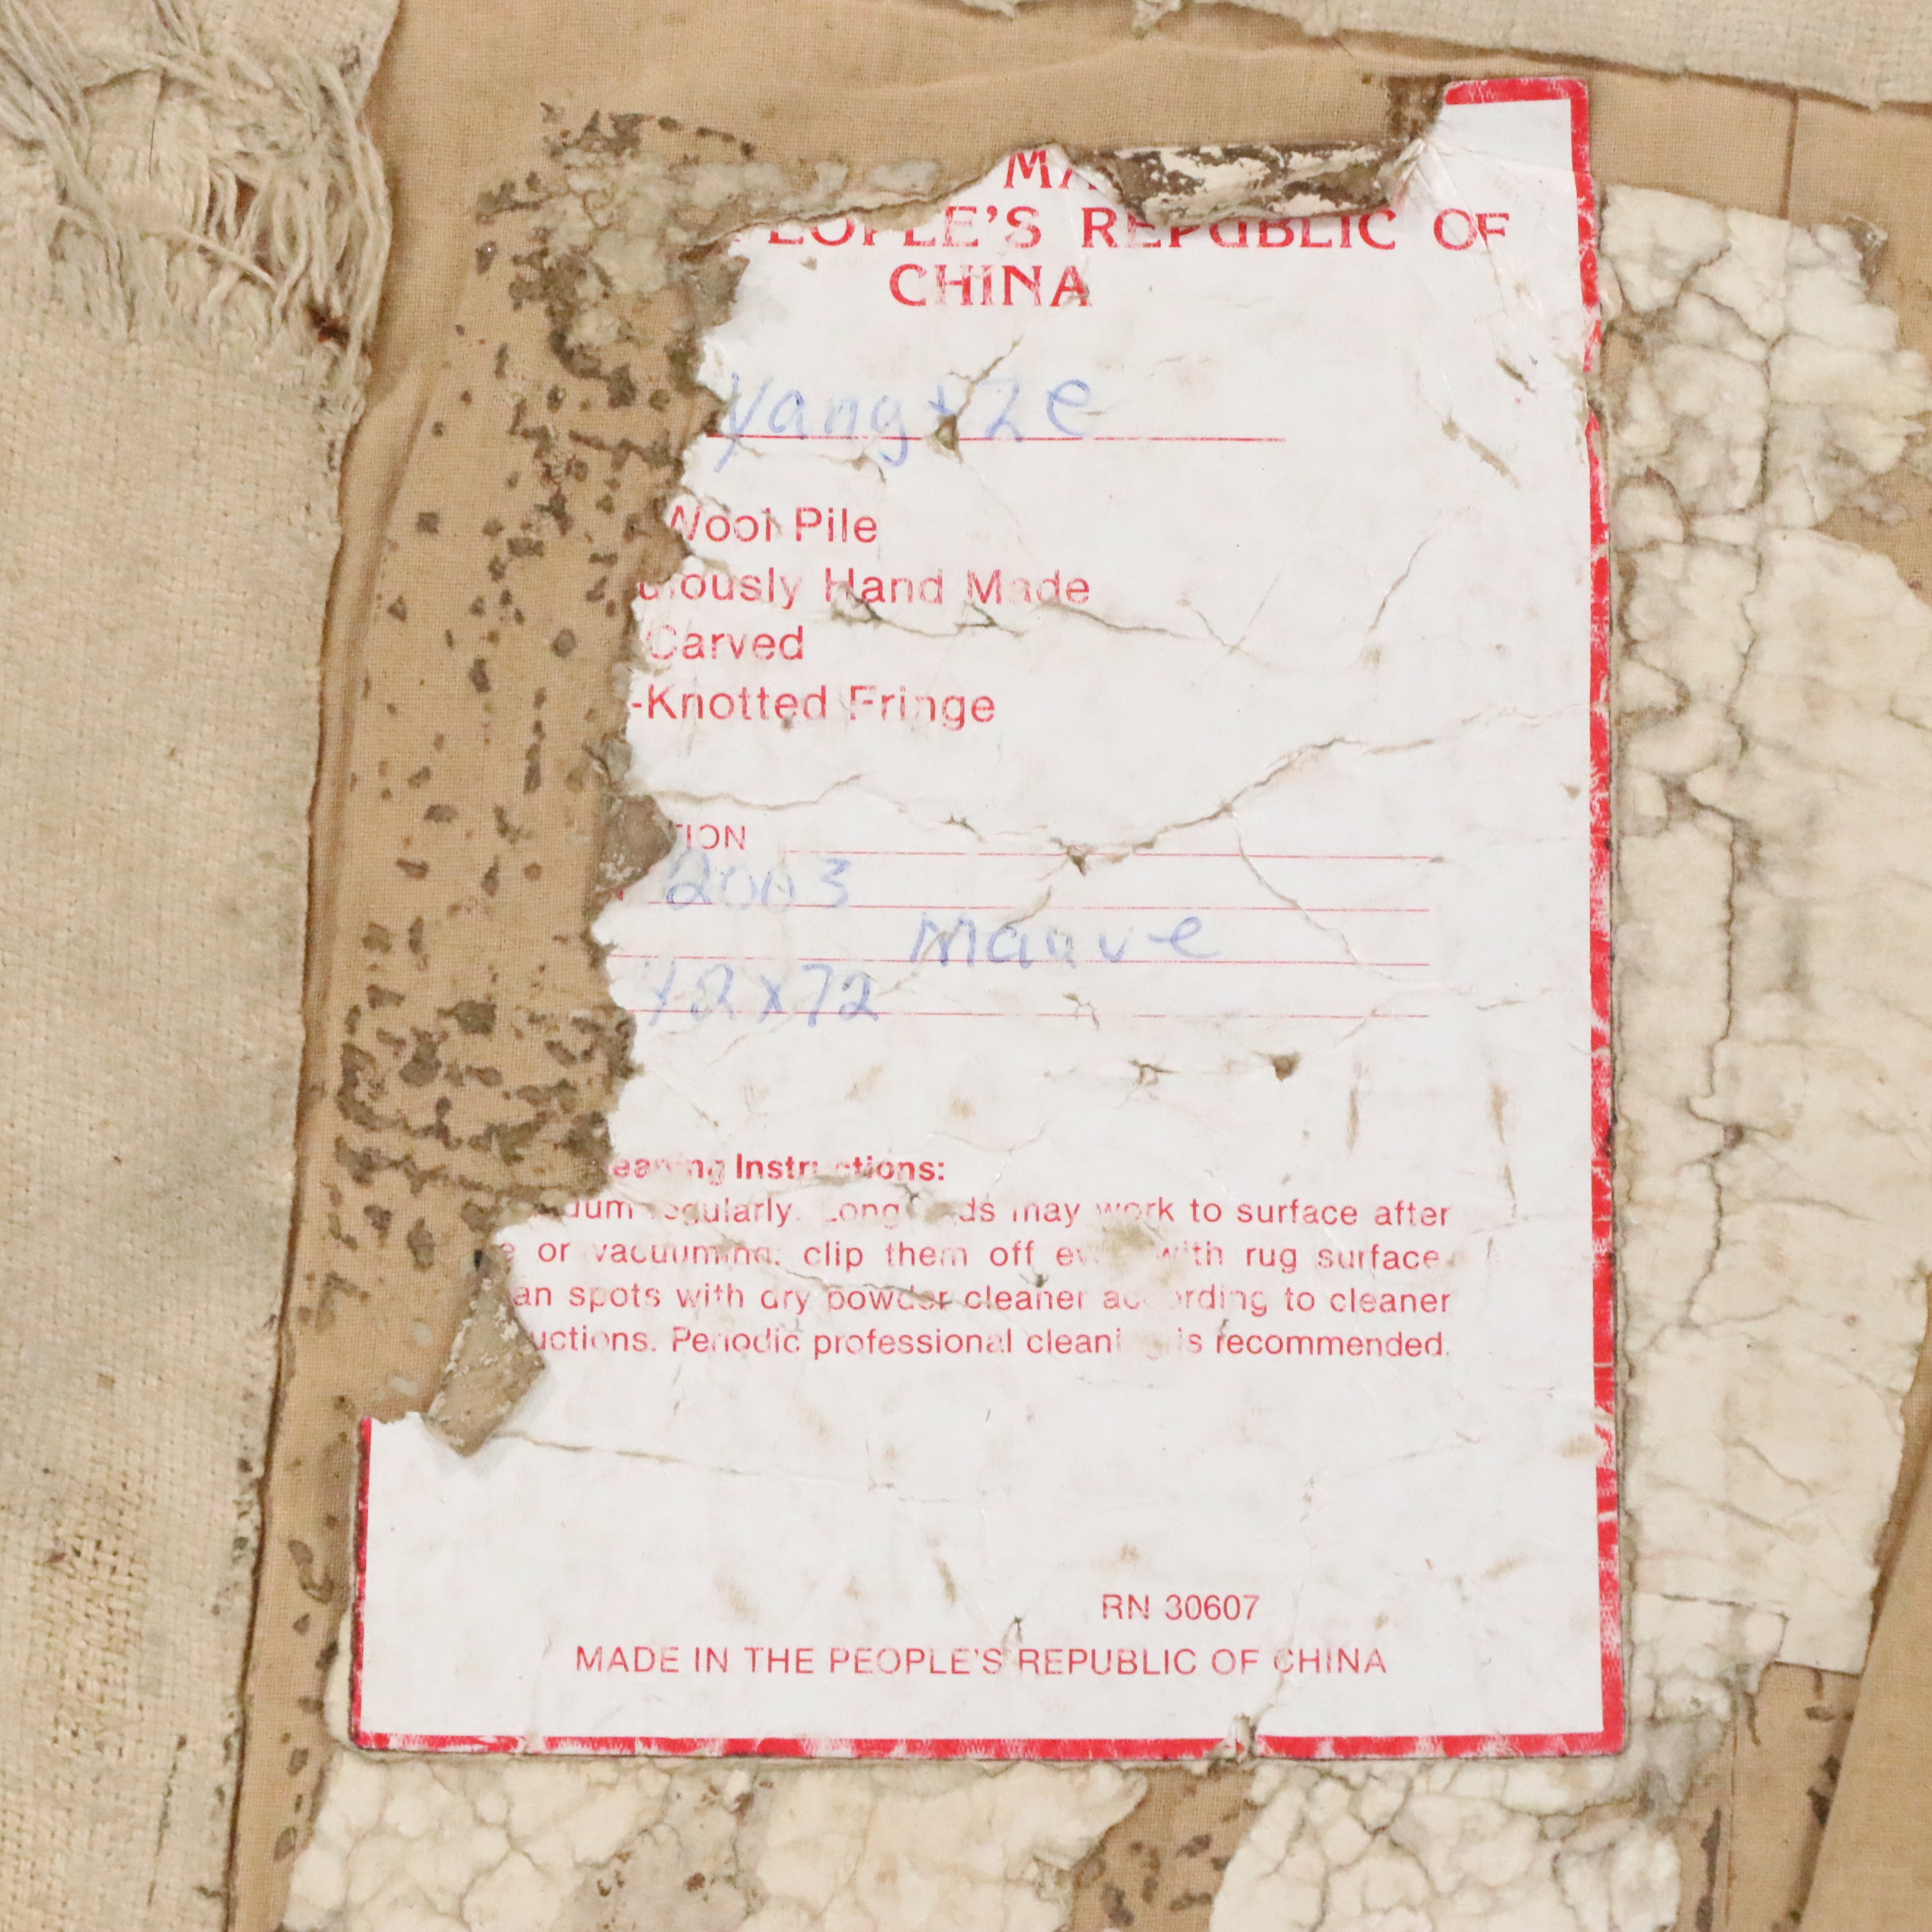 PEOPLE'S REPUBLIC OF
CHINA
Yangtze
Wool Pile
Hand Made
Carved
-Knotted Fringe
2003
Mauve
x72
Cleaning Instructions:
regularly. Long may work to surface after
or vacuuming: clip them off with rug surface.
spots with dry powder cleaner according to cleaner
Periodic professional cleaning is recommended.
RN 30607
MADE IN THE PEOPLE'S REPUBLIC OF CHINA